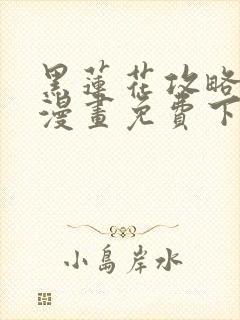 黑蓮花攻略
漫畫免費下
小島岸水